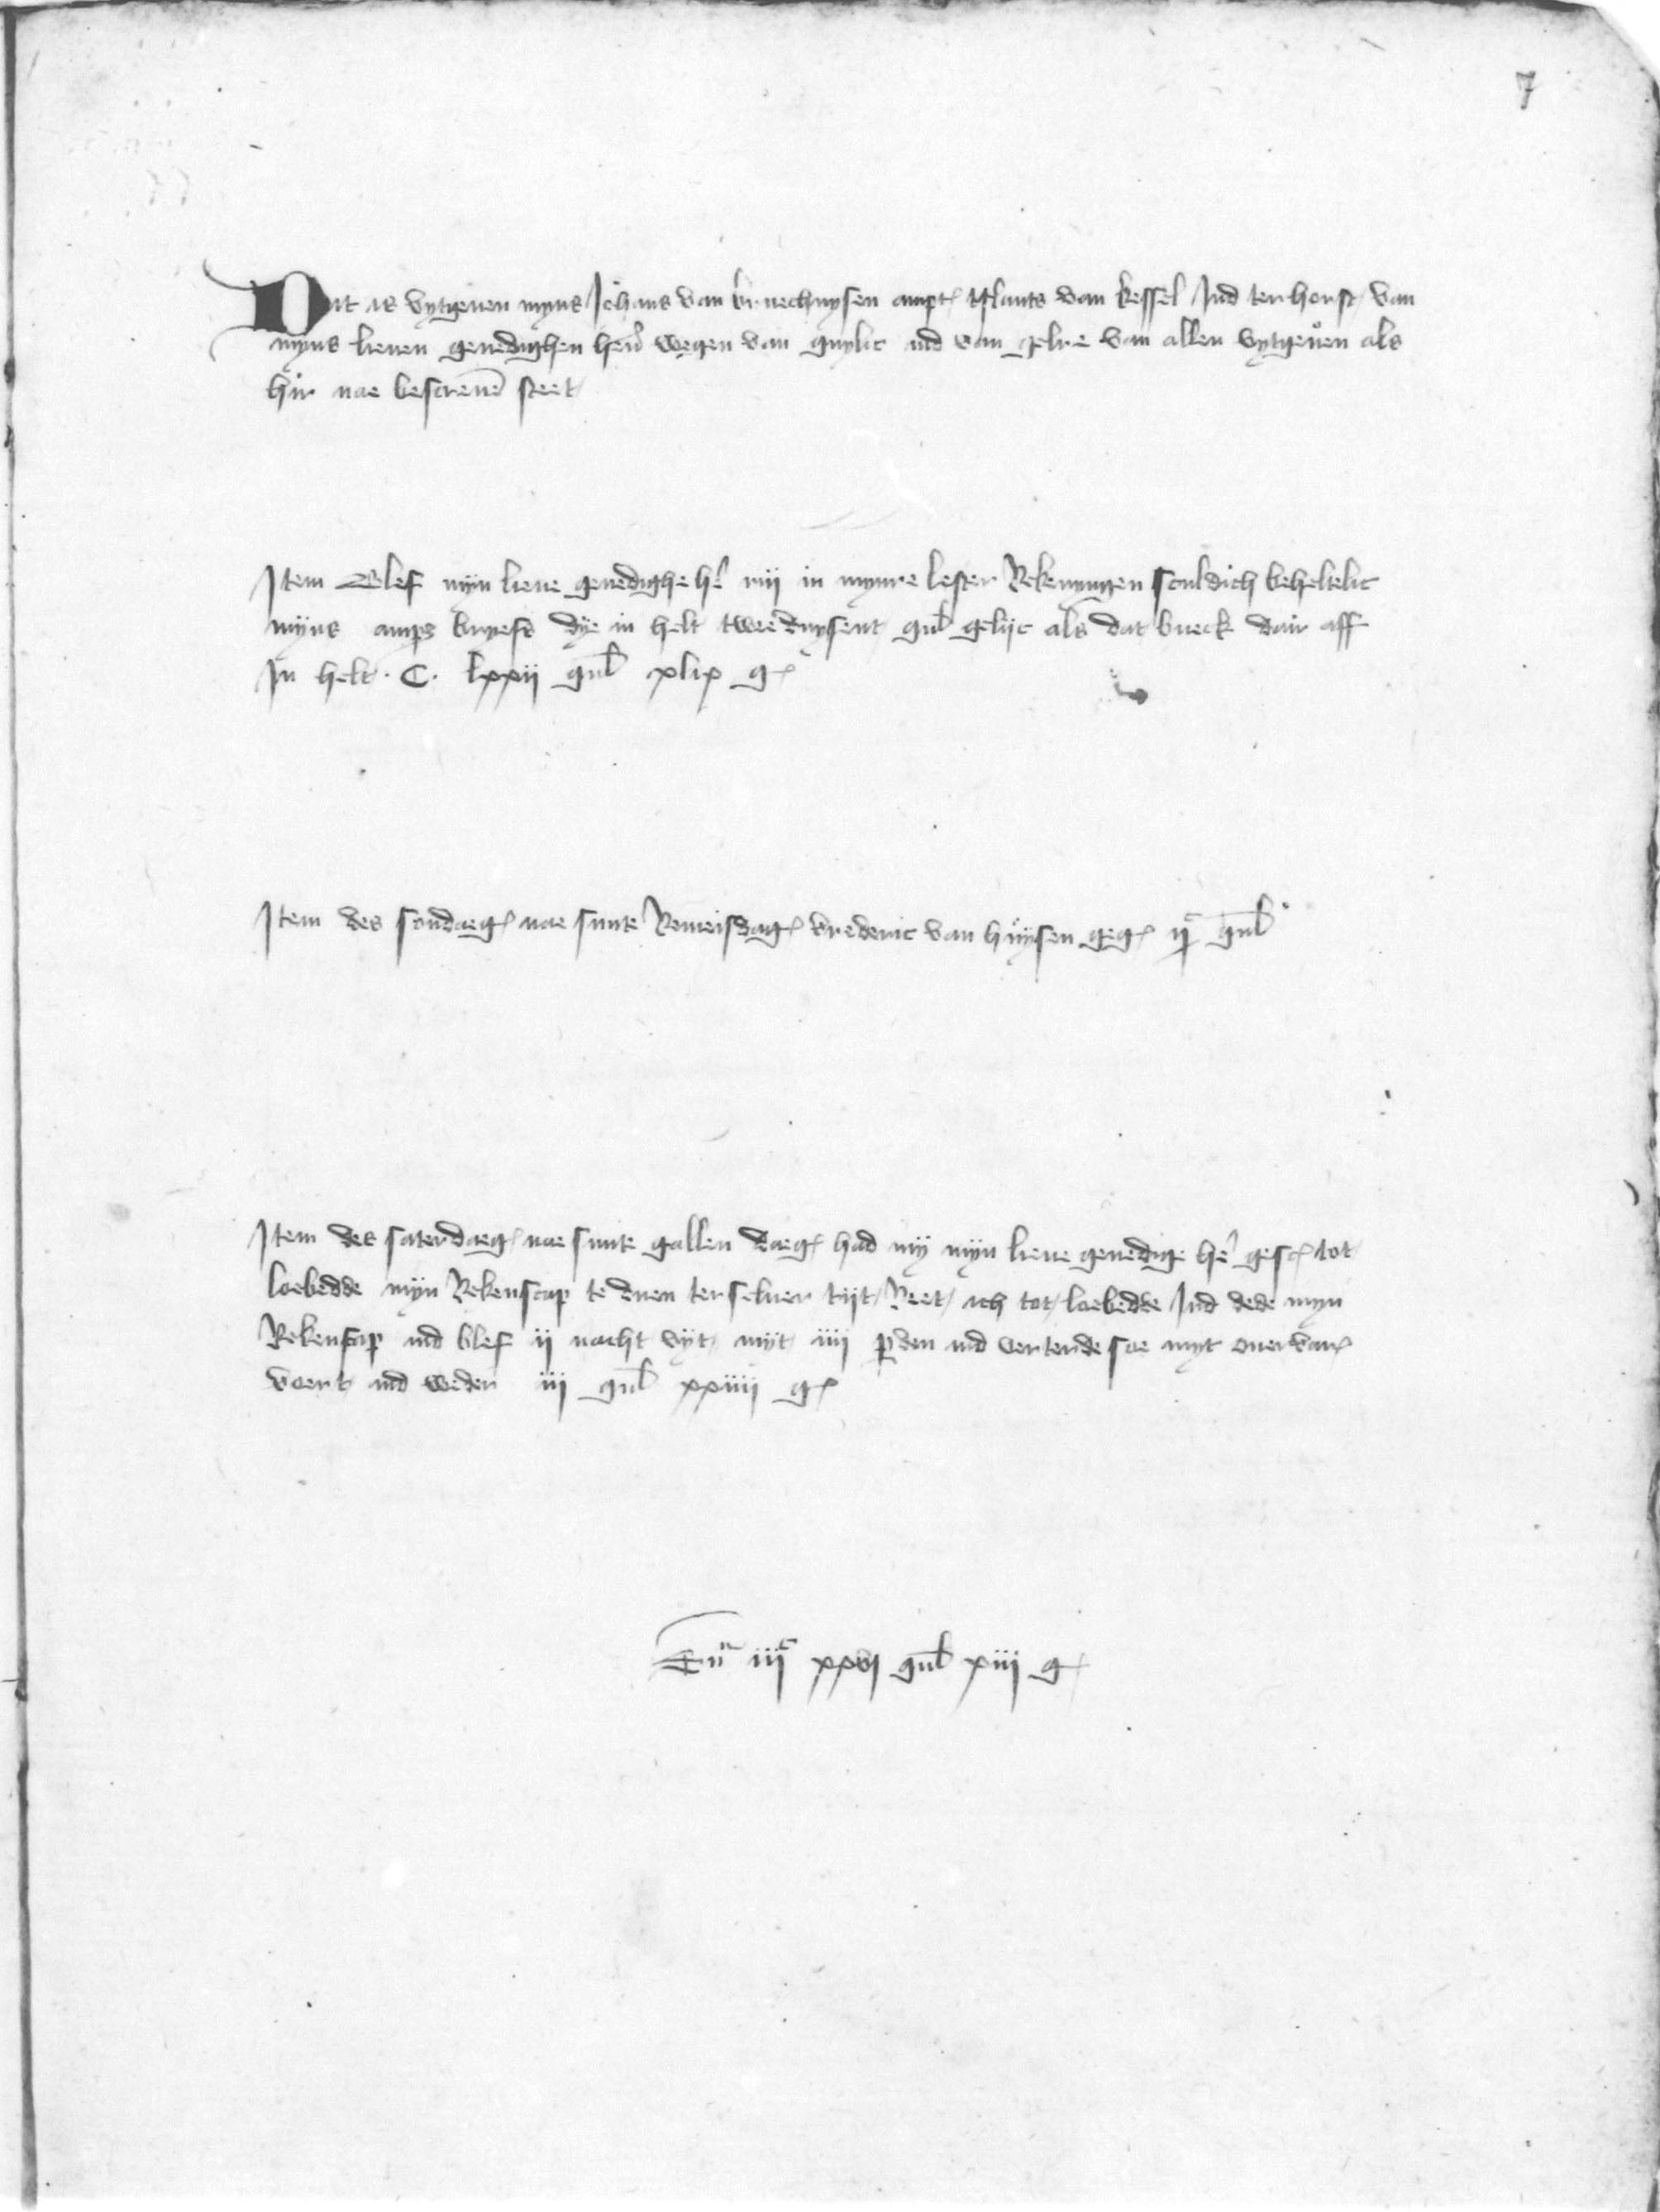 7
Dit is vytgeuen myns Johans van bruechuysen ampt͛ tslants van kessel Ind ter horst van
myns lieuen genedighen hern wegen van guylic ind van gelre van allen vytgeuen als
hir nae bescreuen steet
Item blef myn lieue genedighe her mij in mynre lester Rekenyngen sculdich beheltelic
myns amps bryefs dye in helt twedusent gul gelijc als dat bueck dair aff
In helt · C · lxxij gul xlix g͛
Item des sondaeg͛ nae sunte Remeisdag͛ frederic van huysen geg͛ gul
Item des saterdaeg͛ nae sunte gallen daeg͛ had mij myn lieue genedige her gesc͛ tot
loebedde myn Rekenscap te duen ter seluer tijt Reet ich tot loebedde Ind dede myn
Rekenscap ind blef ij nacht vyt myt iiij perden ind verterde soe myt ouervar͛
voert ind weder iij gul xxiiij g͛
Su͛ iijc xxvj gul xiij g͛